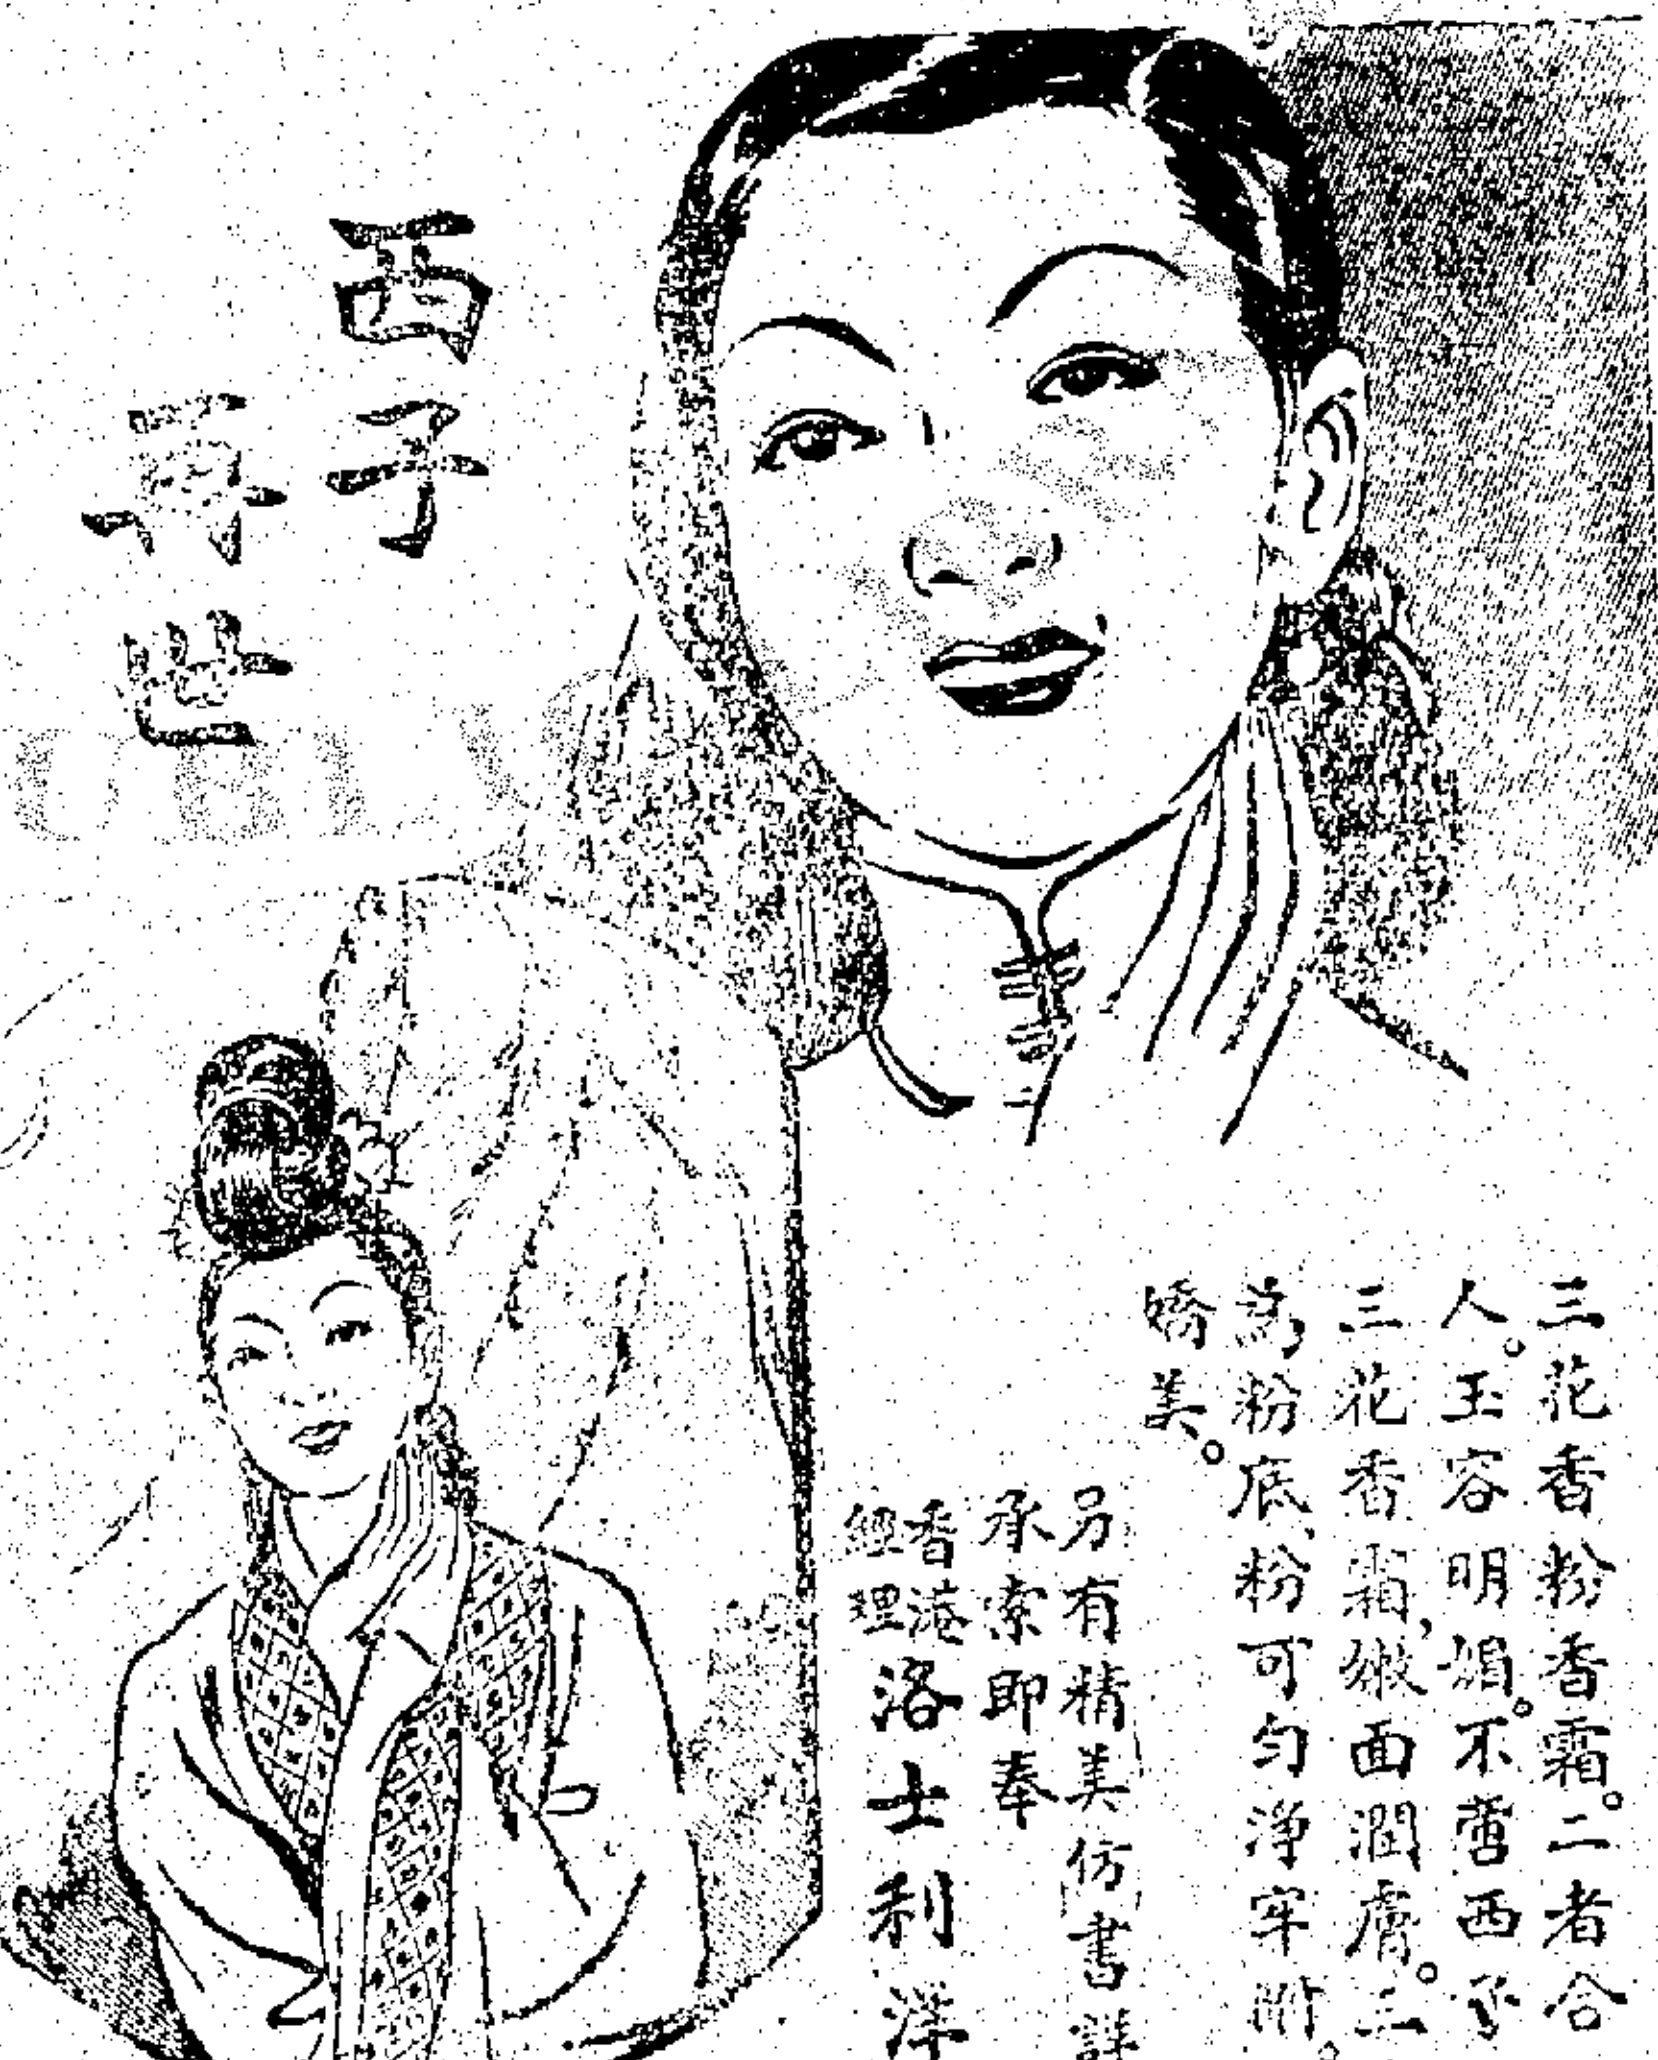 西子
再世
三花香粉香霜。二者合
人。玉容明媚。不啻西子
三花香霜,嫩面潤膚。三
為粉底、粉可勻淨牢附。
嬌美。
另有精美仿書詳
承索即奉
香港
經理
洛士利洋